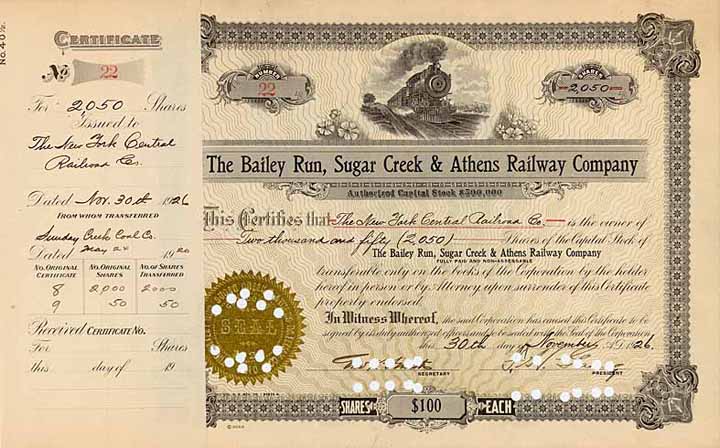 No. 40½.
CERTIFICATE
No 22
For 2,050 Shares
Issued to
The New York Central
Railroad Co.
Dated Nov. 30th 1926
FROM WHOM TRANSFERRED
Sunday Creek Coal Co.
Dated May 24 1920
NO. ORIGINAL CERTIFICATE NO. ORIGINAL SHARES NO. OF SHARES TRANSFERRED
8 2,000 2000
9 50 50
Received CERTIFICATE NO.
For Shares
this day of 19
NUMBER
22
NUMBER
2,050
The Bailey Run, Sugar Creek & Athens Railway Company
Authorized Capital Stock $500,000
This Certifies that The New York Central Railroad Co. is the owner of
Two thousand and fifty (2,050) Shares of the Capital Stock of
The Bailey Run, Sugar Creek & Athens Railway Company
FULLY PAID AND NON-ASSESSABLE
transferable only on the books of the Corporation by the holder
hereof in person or by Attorney, upon surrender of this Certificate
properly endorsed.
In Witness Whereof, the said Corporation has caused this Certificate to be
signed by its duly authorized officers and to be sealed with the Seal of the Corporation
this 30th day of November A.D. 1926
SEAL
SECRETARY
PRESIDENT
SHARES $100 EACH